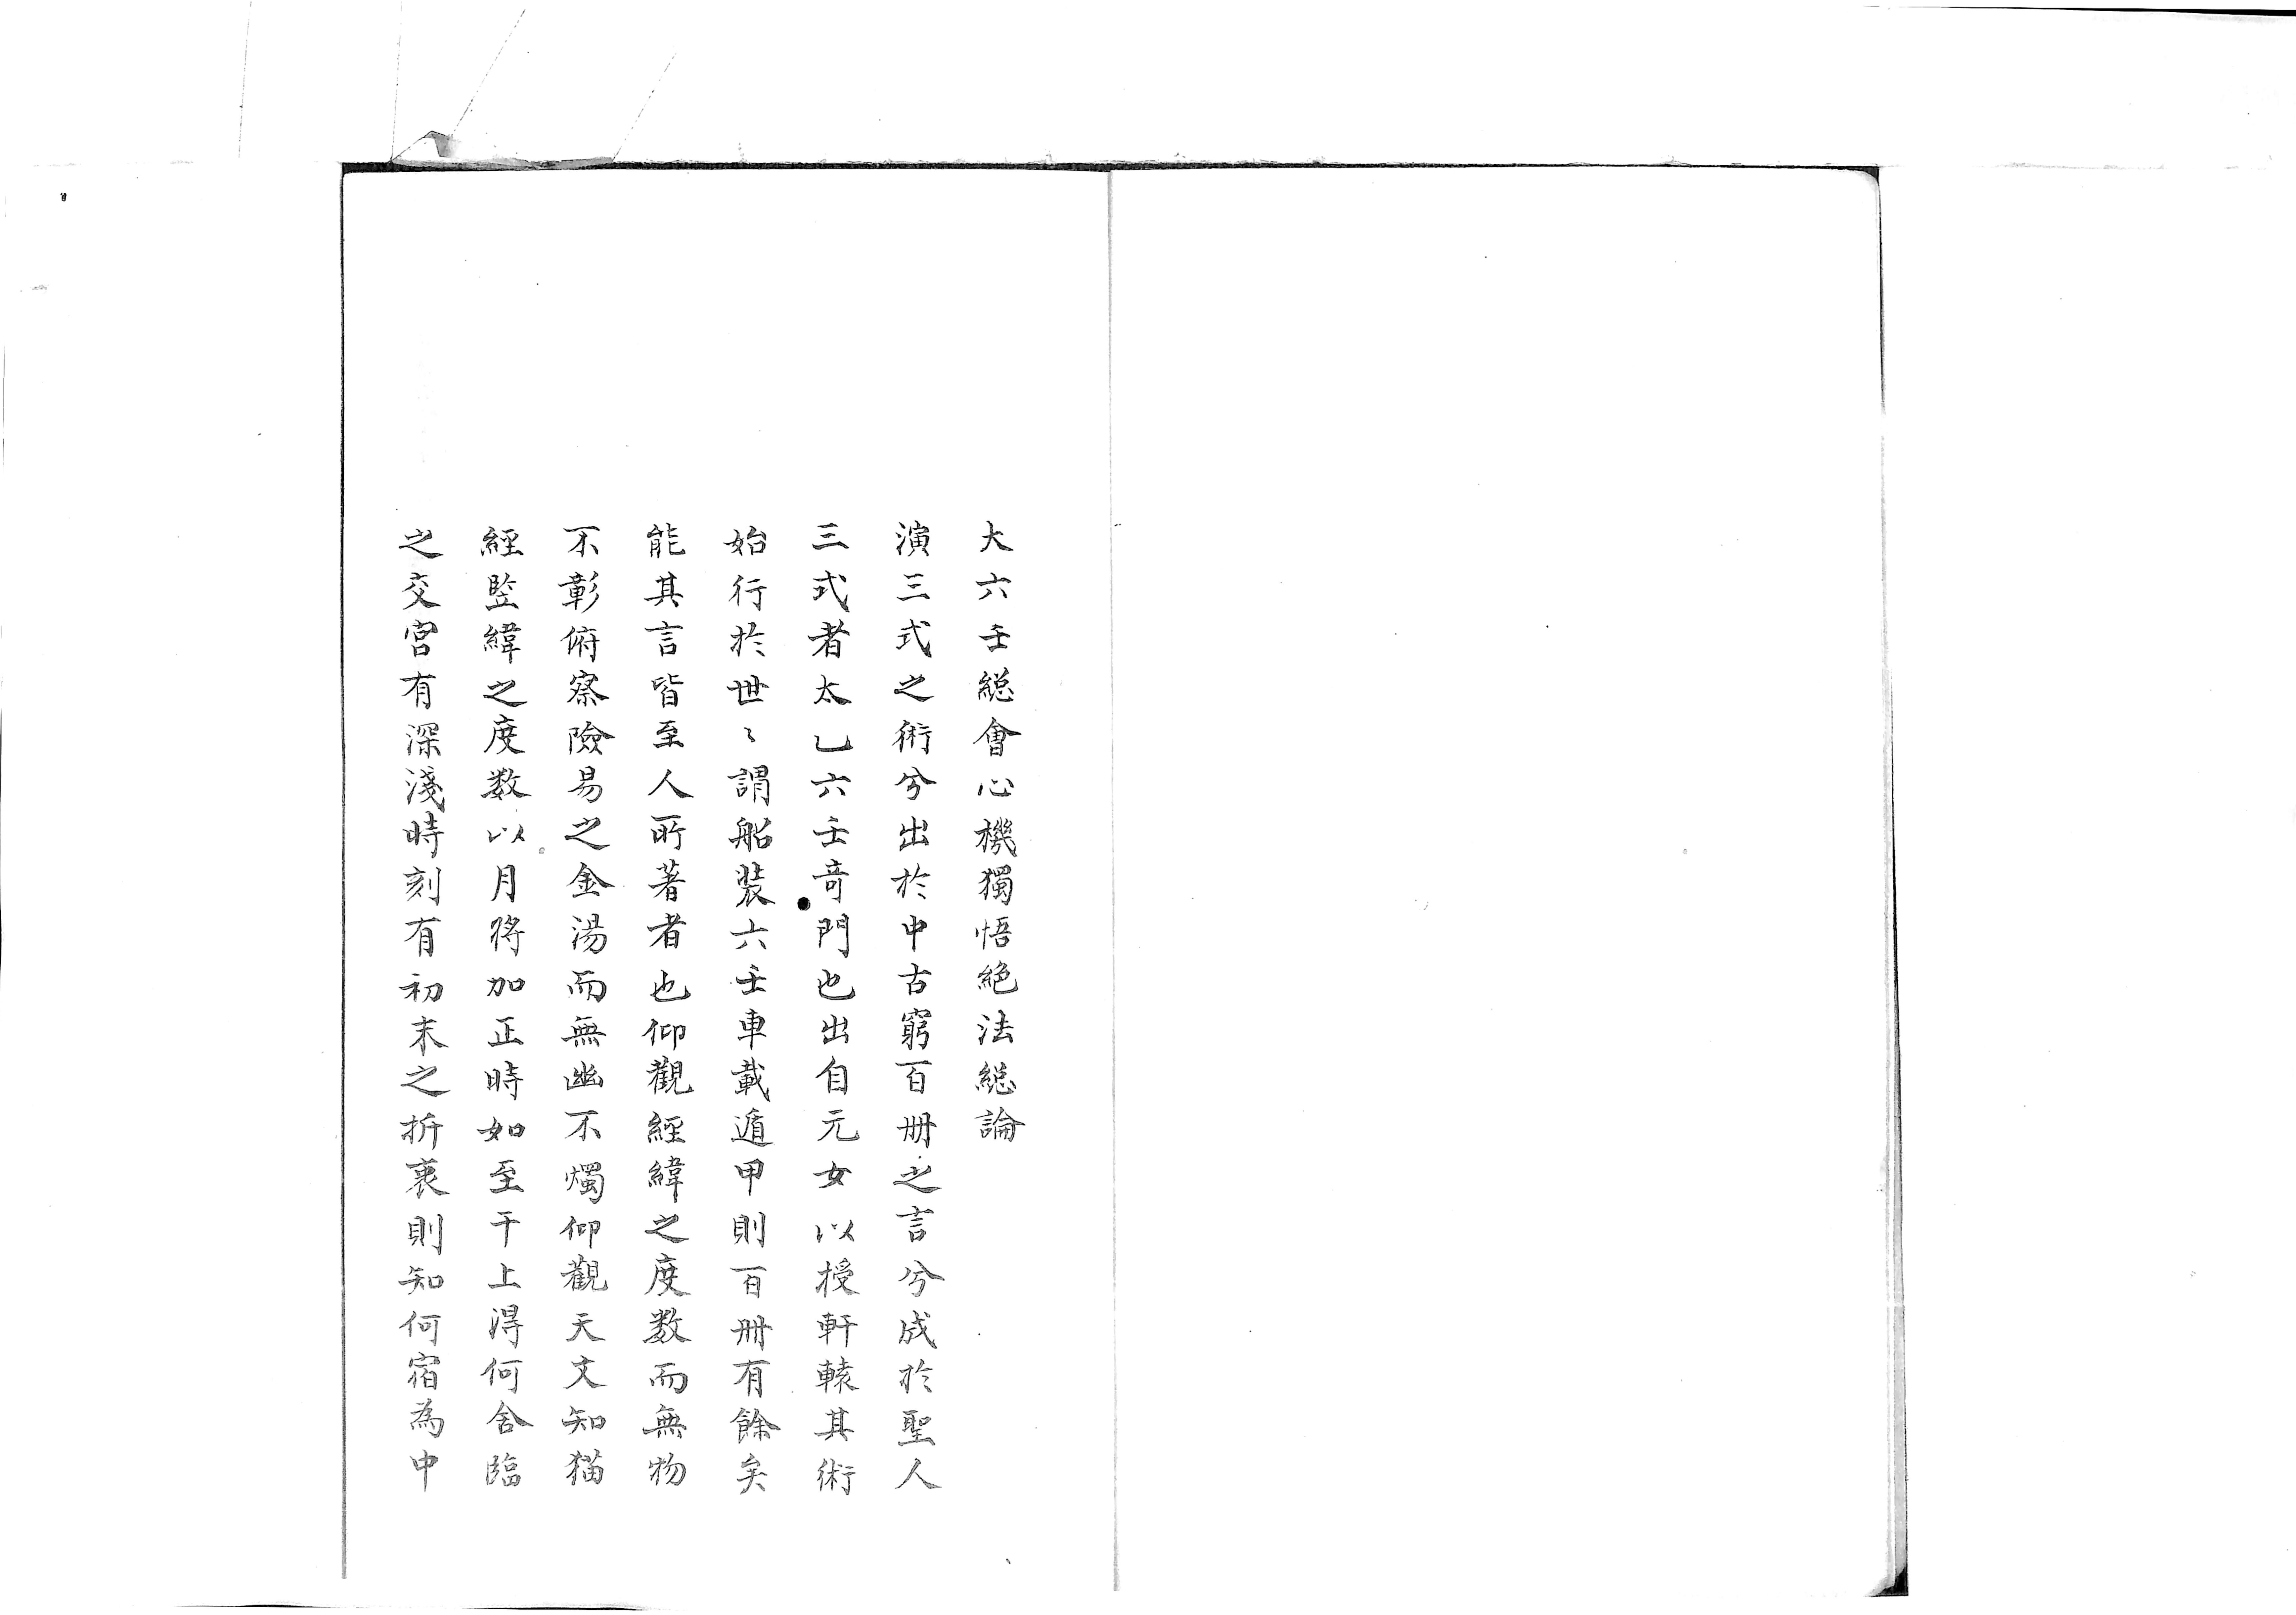 大六壬縂會心機獨悟絶法縂論
演三式之術兮出於中古窮百册之言兮成於聖人
三式者太乙六壬竒門也出自元女以授軒轅其術
始行於世〻謂船裝六壬車載遁甲則百册有餘矣
能其言皆至人所著者也仰觀經緯之度数而無物
不彰俯察險易之金湯而無幽不燭仰觀天文知猫
經竪緯之度数以月将加正時如至干上得何舍臨
之交宮有深淺時刻有初末之折衷則知何宿為中